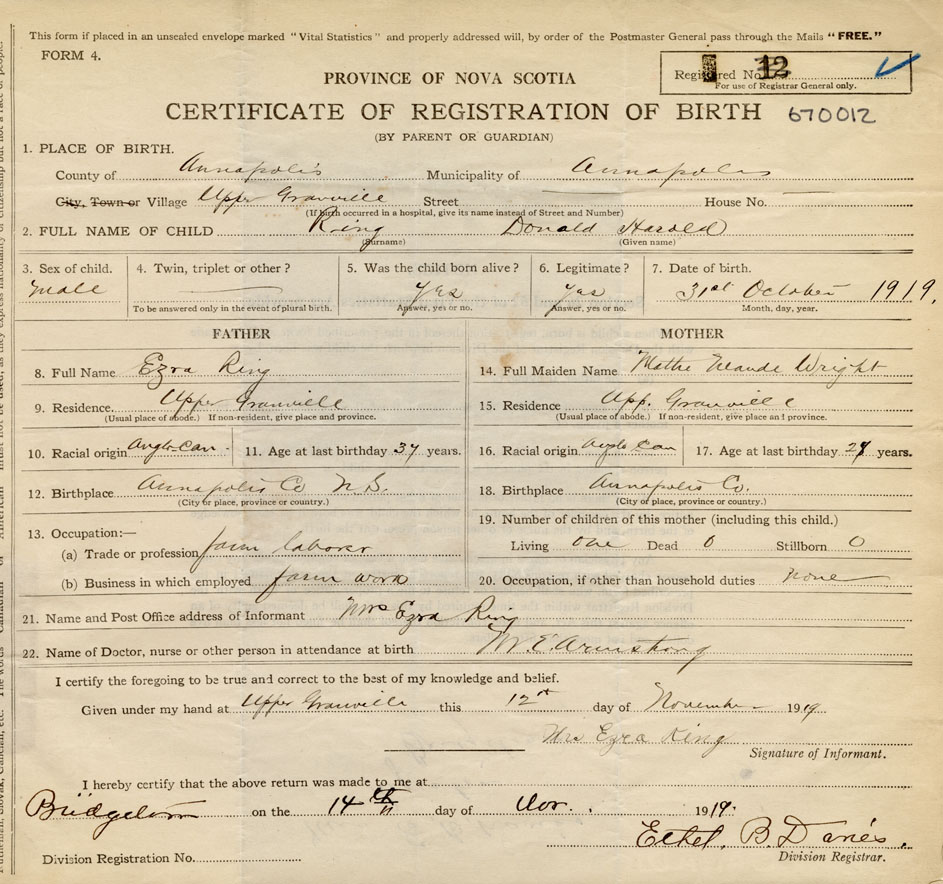 This form if placed in an unsealed envelope marked "Vital Statistics" and properly addressed will, by order of the Postmaster General pass through the Mails "FREE."
FORM 4.
Registered No. 12
For use of Registrar General only.
PROVINCE OF NOVA SCOTIA
CERTIFICATE OF REGISTRATION OF BIRTH 670012
(BY PARENT OR GUARDIAN)
1. PLACE OF BIRTH.
County of Annapolis Municipality of Annapolis
City, Town or Village Upper Granville Street House No.
(If birth occurred in a hospital, give its name instead of Street and Number)
2. FULL NAME OF CHILD Ring Donald Harold
(Surname) (Given name)
3. Sex of child. 4. Twin, triplet or other? 5. Was the child born alive? 6. Legitimate? 7. Date of birth.
male yes yes 31st October 1919.
To be answered only in the event of plural birth. Answer, yes or no. Answer, yes or no. Month, day, year.
FATHER MOTHER
8. Full Name Ezra Ring 14. Full Maiden Name Maude Wright
9. Residence. Upper Granville 15. Residence Upp. Granville
(Usual place of abode.) If non-resident, give place and province. (Usual place of abode.) If non-resident, give place and province.
10. Racial origin 11. Age at last birthday 37 years. 16. Racial origin 17. Age at last birthday years.
12. Birthplace Annapolis Co N.S. 18. Birthplace Annapolis Co.
(City or place, province or country.) (City or place, province or country.)
13. Occupation:— 19. Number of children of this mother (including this child.)
(a) Trade or profession farm laborer Living one Dead 0 Stillborn 0
(b) Business in which employed farm work 20. Occupation, if other than household duties none
21. Name and Post Office address of Informant Mrs Ezra Ring
22. Name of Doctor, nurse or other person in attendance at birth M.E. Armstrong
I certify the foregoing to be true and correct to the best of my knowledge and belief.
Given under my hand at Upper Granville this 12th day of November 1919.
Mrs Ezra Ring
Signature of Informant.
I hereby certify that the above return was made to me at
Bridgetown on the 14th day of Nov. 1919.
Ethel. B. Davies.
Division Registration No. Division Registrar.